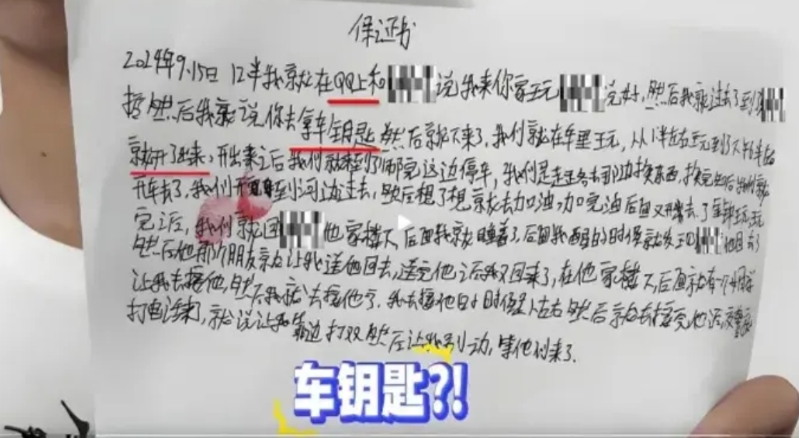 保证书
2024年9.15日 12半我就在QQ上和 说我来你家玩 说好,然后我就过去了到
然后我就说你去拿车钥匙 然后就下来了,我们就在车里玩,从1半左右玩到了
就开了出来,开出来之后我们就到了 这边停车,我们是走去那边换东西,换完后我们就
开车去了,我们开 到河边过去,然后想了想就去加油,加完油后面又去了 玩
完之后,我们就回 他家楼下后面我就睡着了,后面我醒的时候就发现 他回去了
然后他那个朋友就让我送他回去,送完他之后我又回来了,在他家楼下后面就有一个
让我去接他,然后我就去接他了,我去接他的时候是 左右然后就去接完他
打电话来了,就说让我靠边打双 然后让我别动,等他们来了.
车钥匙?!